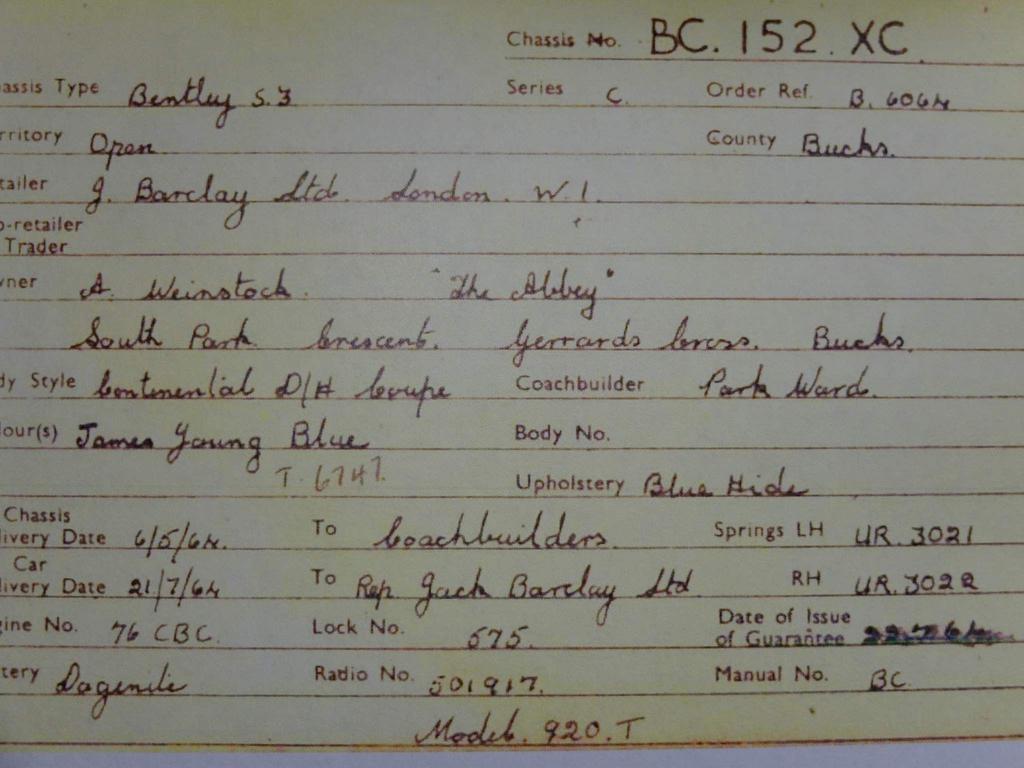 Chassis No. BC. 152. XC
assis Type Bentley S.3 Series C. Order Ref. B. 6064
rritory Open County Bucks.
tailer J. Barclay Ltd. London. W.1.
o-retailer
Trader
ner A. Weinstock. "The Abbey"
South Park Crescent. Gerrards Cross. Bucks.
dy Style Continental D/H Coupe Coachbuilder Park Ward.
lour(s) James Young Blue Body No.
T. 6747. Upholstery Blue Hide
Chassis
livery Date 6/5/64. To Coachbuilders. Springs LH UR. 3021
Car
livery Date 21/7/64 To Rep. Jack Barclay Ltd. RH UR. 3022
gine No. 76 CBC. Lock No. 575. Date of Issue
of Guarantee
tery Dagenite Radio No. 501917. Manual No. BC
Model. 920. T